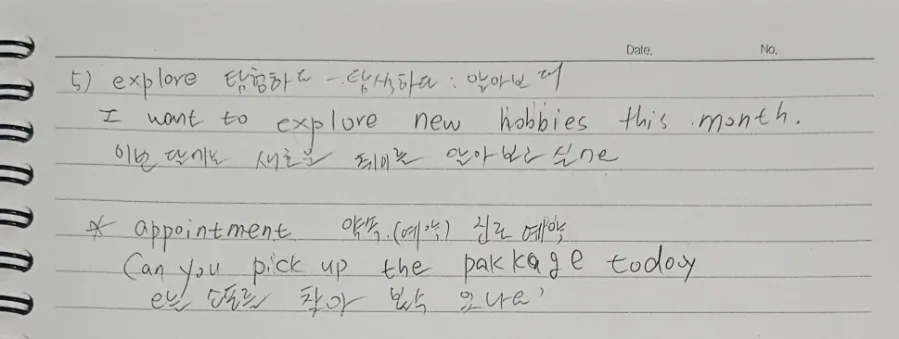 Date. No.
5) explore 탐험하다 - 탐식하다 : 알아보다
I want to explore new hobbies this month.
이번 달에는 새로운 취미를 알아보고 싶어요
* appointment 약속.(예약) 진료 예약
Can you pick up the pakkage today
소포를 찾아 있나요?